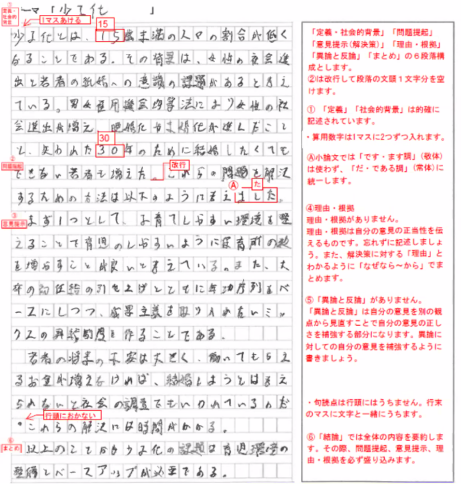 テーマ「少子化　　　」
1マスあける
15
少子化とは、15歳未満の人々の割合が低く
なることである。その背景は、女性の社会進
出と若者の結婚への意識の課題があると言え
ている。男女雇用機会均等法により女性の社
会進出が増え、晩婚化や未婚化が進んだこと
30
②
問題提起
改行
Ⓐ
た
するための方法は以下のように考えました。
③
意見提示
まず1つとして、子育てしやすい環境を整
えることで育児のしやすいように保育所の数
を増やすことが良いと考えている。また、大
クスの昇給制度を作ることである。
若者の将来の不安は大きく、働いてもらえ
るお金が増えなければ、結婚しようとは考え
行頭におかない
。これらの解決には時間がかかる。
⑥
まとめ
以上のことから少子化の課題は育児環境の
整備とベースアップが必要である。
「定義・社会的背景」「問題提起」
「意見提示(解決策)」「理由・根拠」
「異論と反論」「まとめ」の6段落構
成とします。
②は改行して段落の文頭1文字分を空
けます。
① 「定義」「社会的背景」は的確に
記述されています。
・算用数字は1マスに2つずつ入れます。
Ⓐ小論文では「です・ます調」(敬体)
は使わず、「だ・である調」(常体)に
統一します。
④理由・根拠
理由・根拠がありません。
理由・根拠は自分の意見の正当性を伝
えるものです。忘れずに記述しましょ
う。また、解決策に対する「理由」と
わかるように「なぜなら〜から」でま
とめます。
⑤「異論と反論」がありません。
「異論と反論」は自分の意見を別の観
点から見直すことで自分の意見の正し
さを補強する部分になります。異論に
対しての自分の意見を補強するように
書きましょう。
・句読点は行頭にはうちません。行末
のマスに文字と一緒にうちます。
⑥「結論」では全体の内容を要約しま
す。その際、問題提起、意見提示、理
由・根拠を必ず盛り込みます。